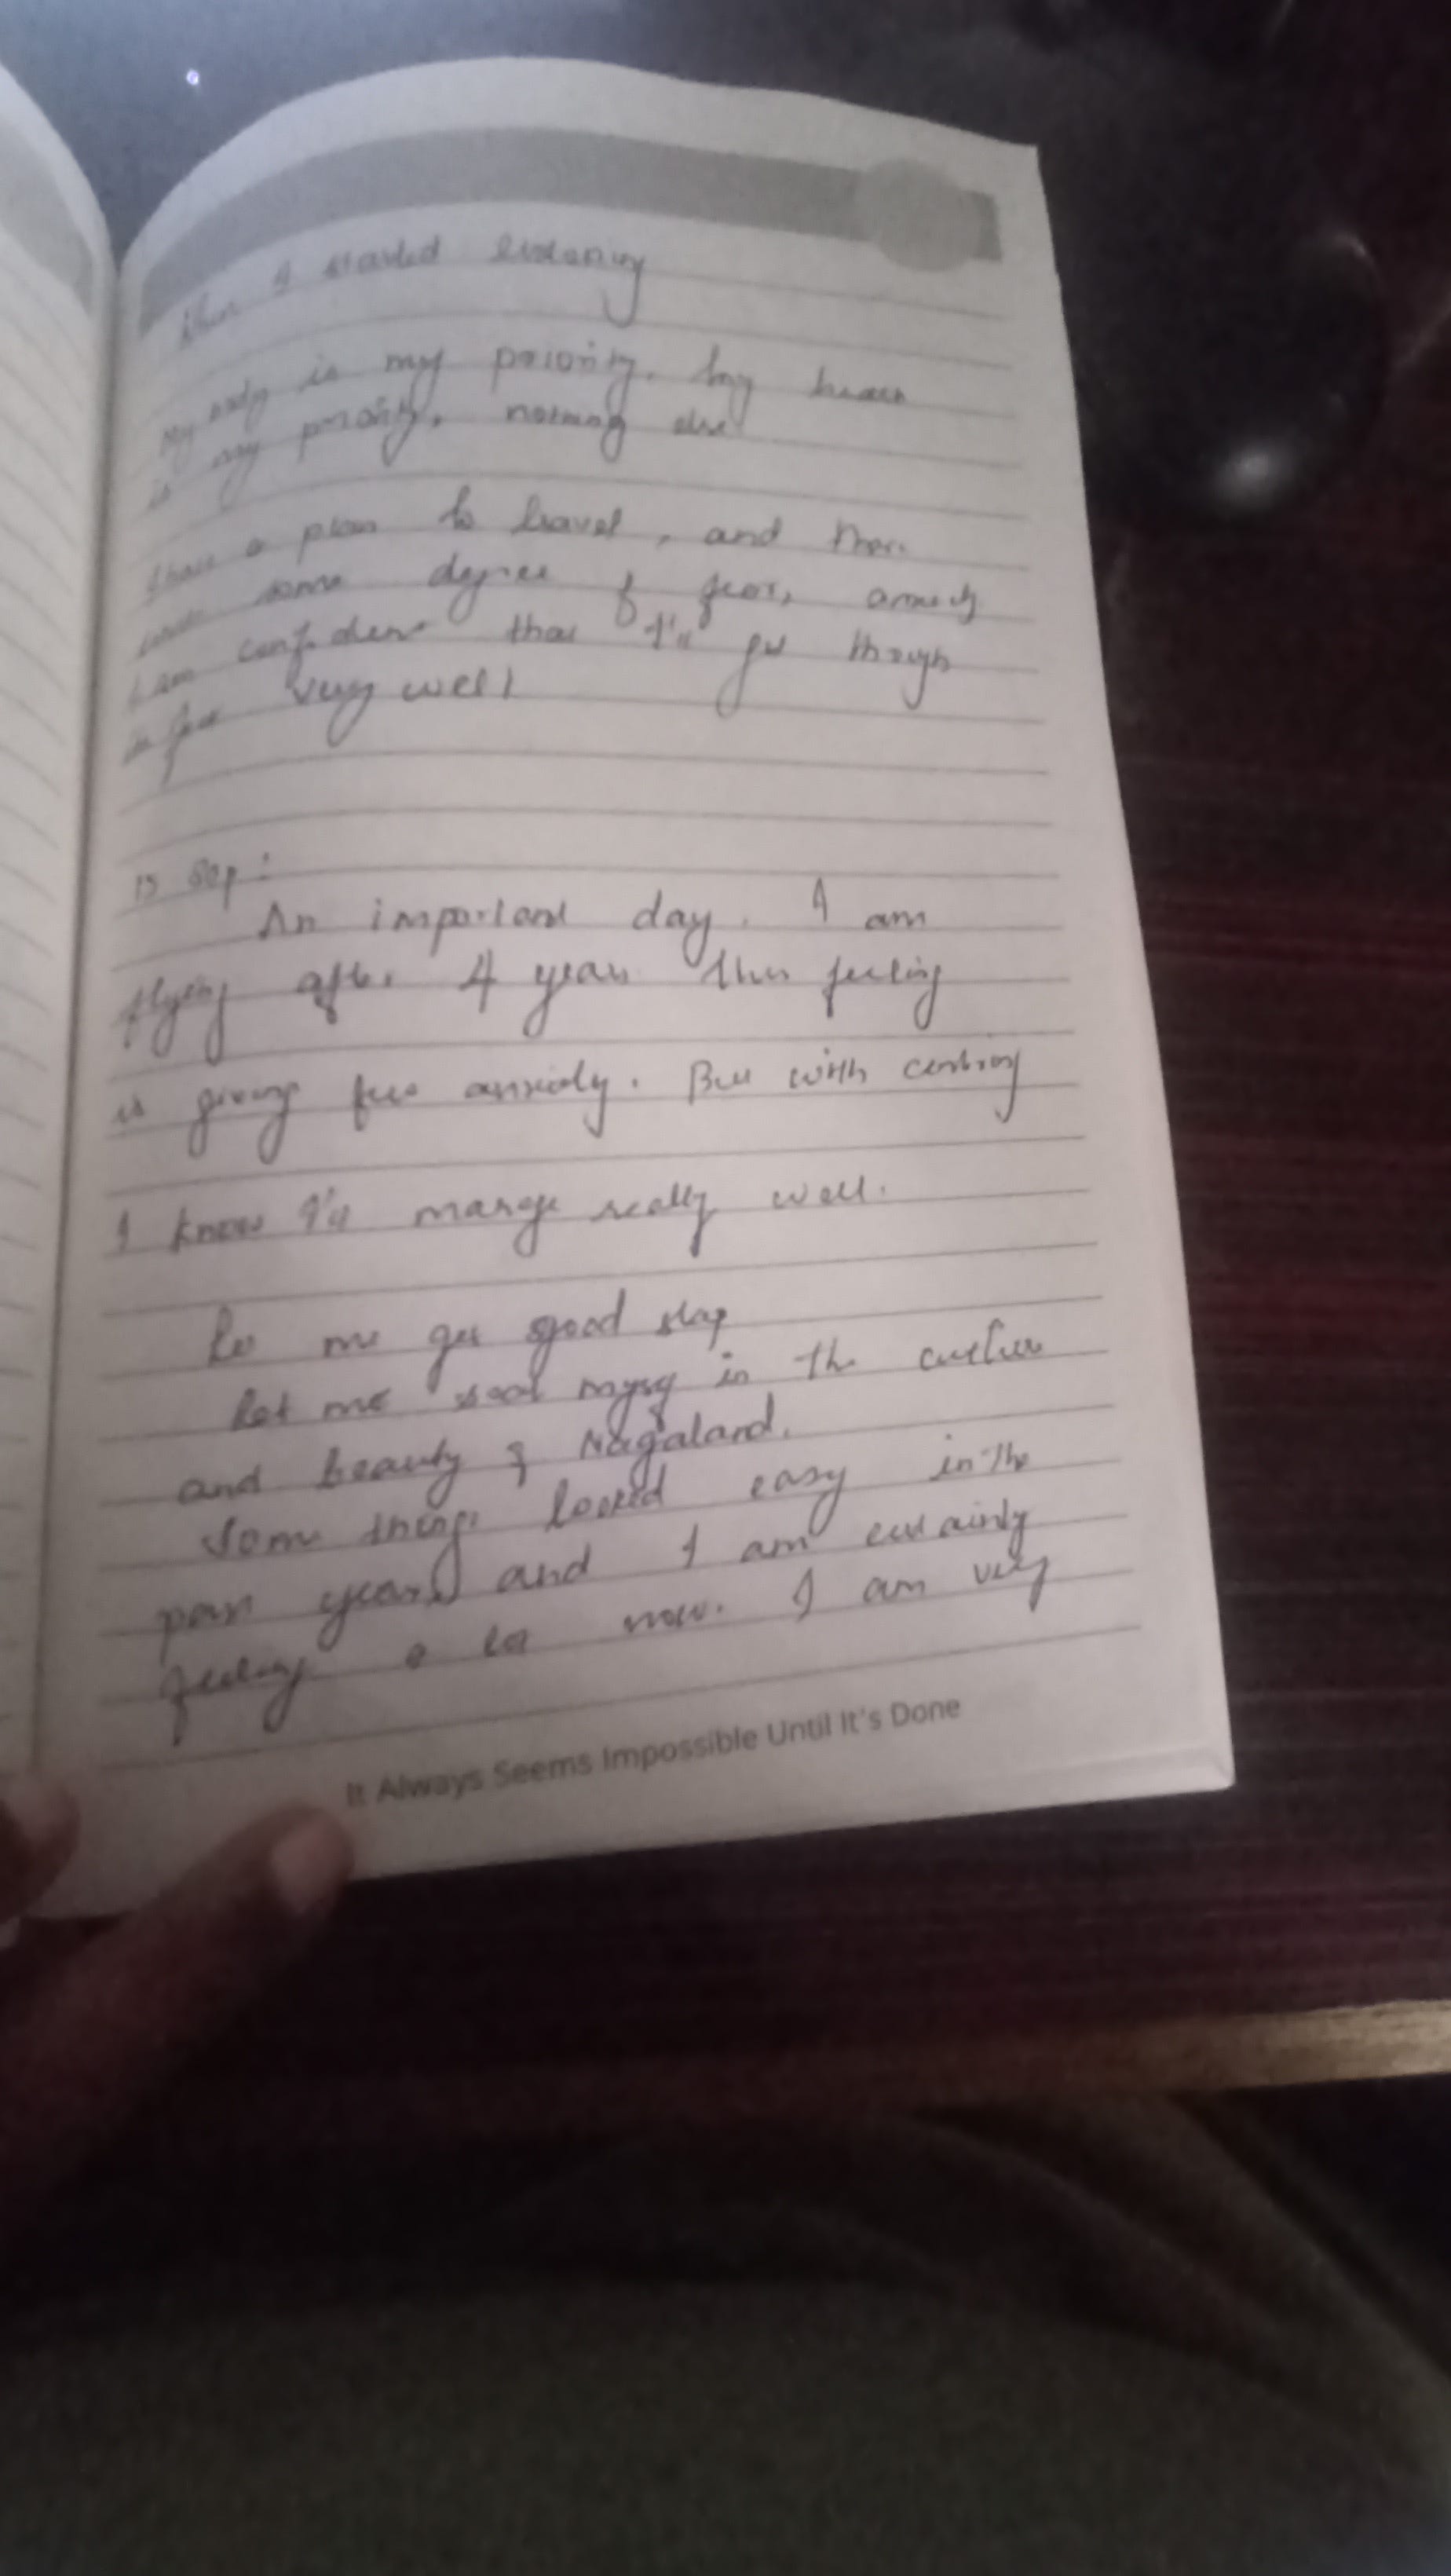 When I started listening
My body is my priority. My health
is my priority, nothing else
I have a plan to travel, and there
some degree of fear, anxiety
I am confident that I'll get through
very well
15 Sep:
An important day. I am
flying after 4 years this feeling
is giving few anxiety. But with
I know I'll manage really well.
Let me get good sleep
Let me soak myself in the culture
and beauty of Nagaland.
Some things looked easy in the
past years and I am certainly
feeling a lot now. I am very
It Always Seems Impossible Until It's Done